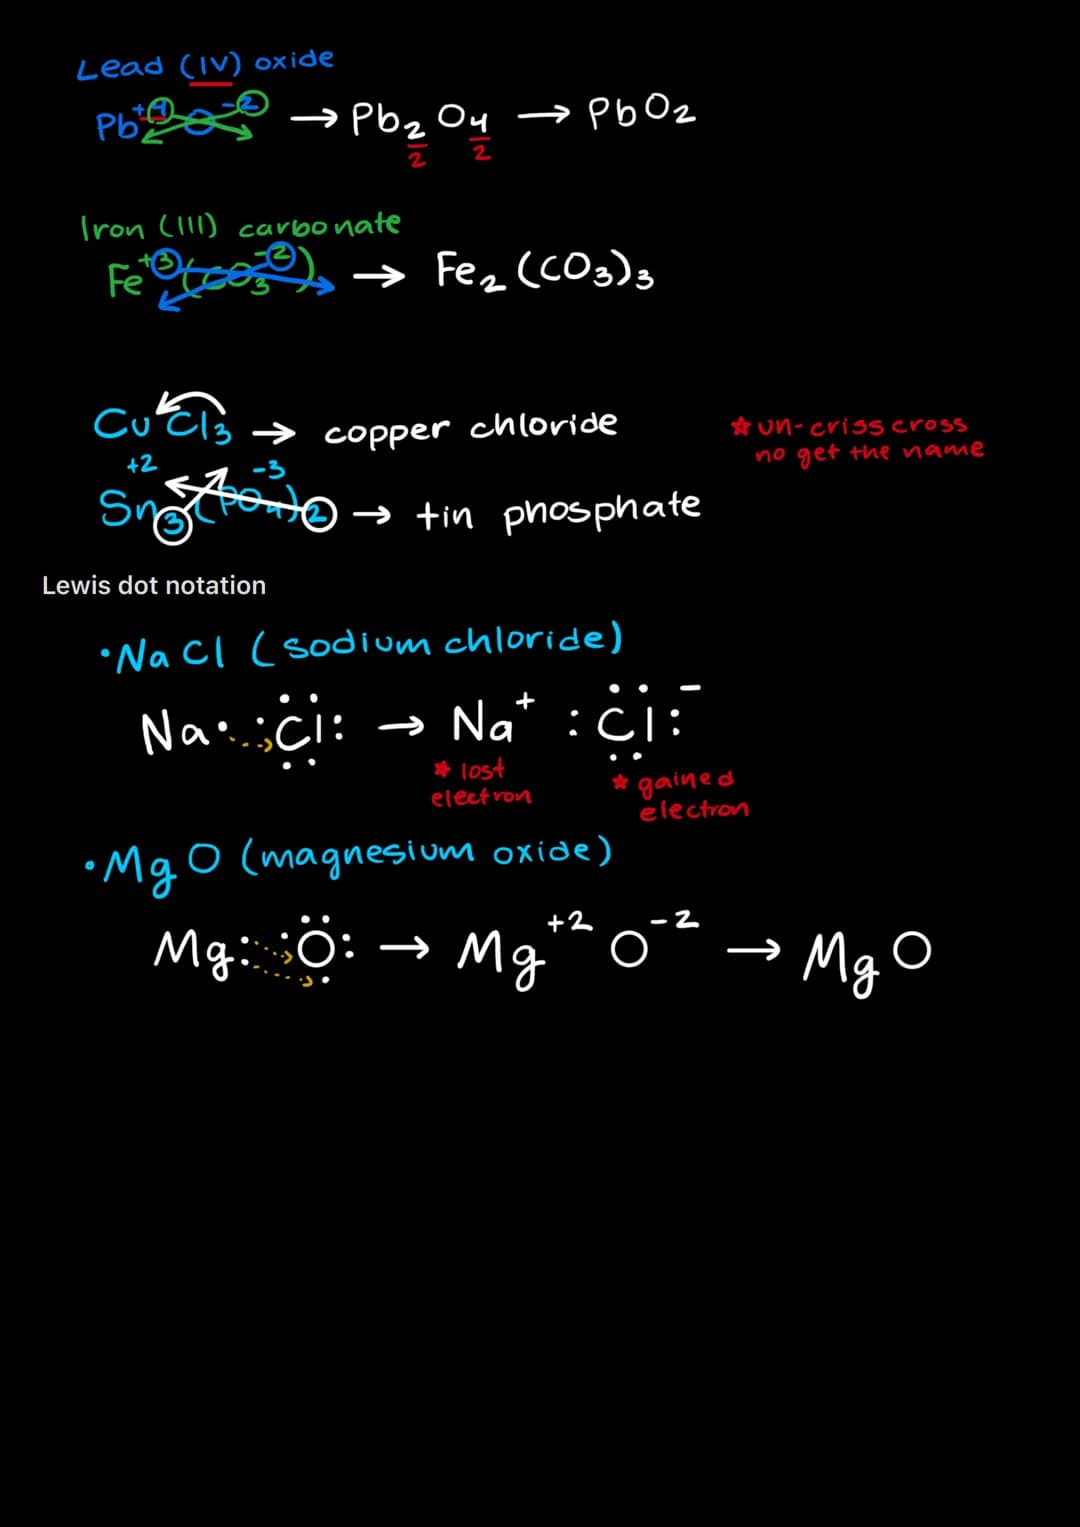 Lead (IV) oxide
Pb+4 O-2 → Pb2/2 O4/2 → PbO2
Iron (III) carbonate
Fe+3 (CO3-2) → Fe2(CO3)3
CuCl3 → copper chloride
★ un-criss cross
no get the name
+2 -3
Sn3(PO4)2 → tin phosphate
Lewis dot notation
• NaCl (sodium chloride)
Na· :Cl: → Na+ :Cl:-
★ lost
electron
★ gained
electron
• MgO (magnesium oxide)
Mg: :O: → Mg+2 O-2 → MgO